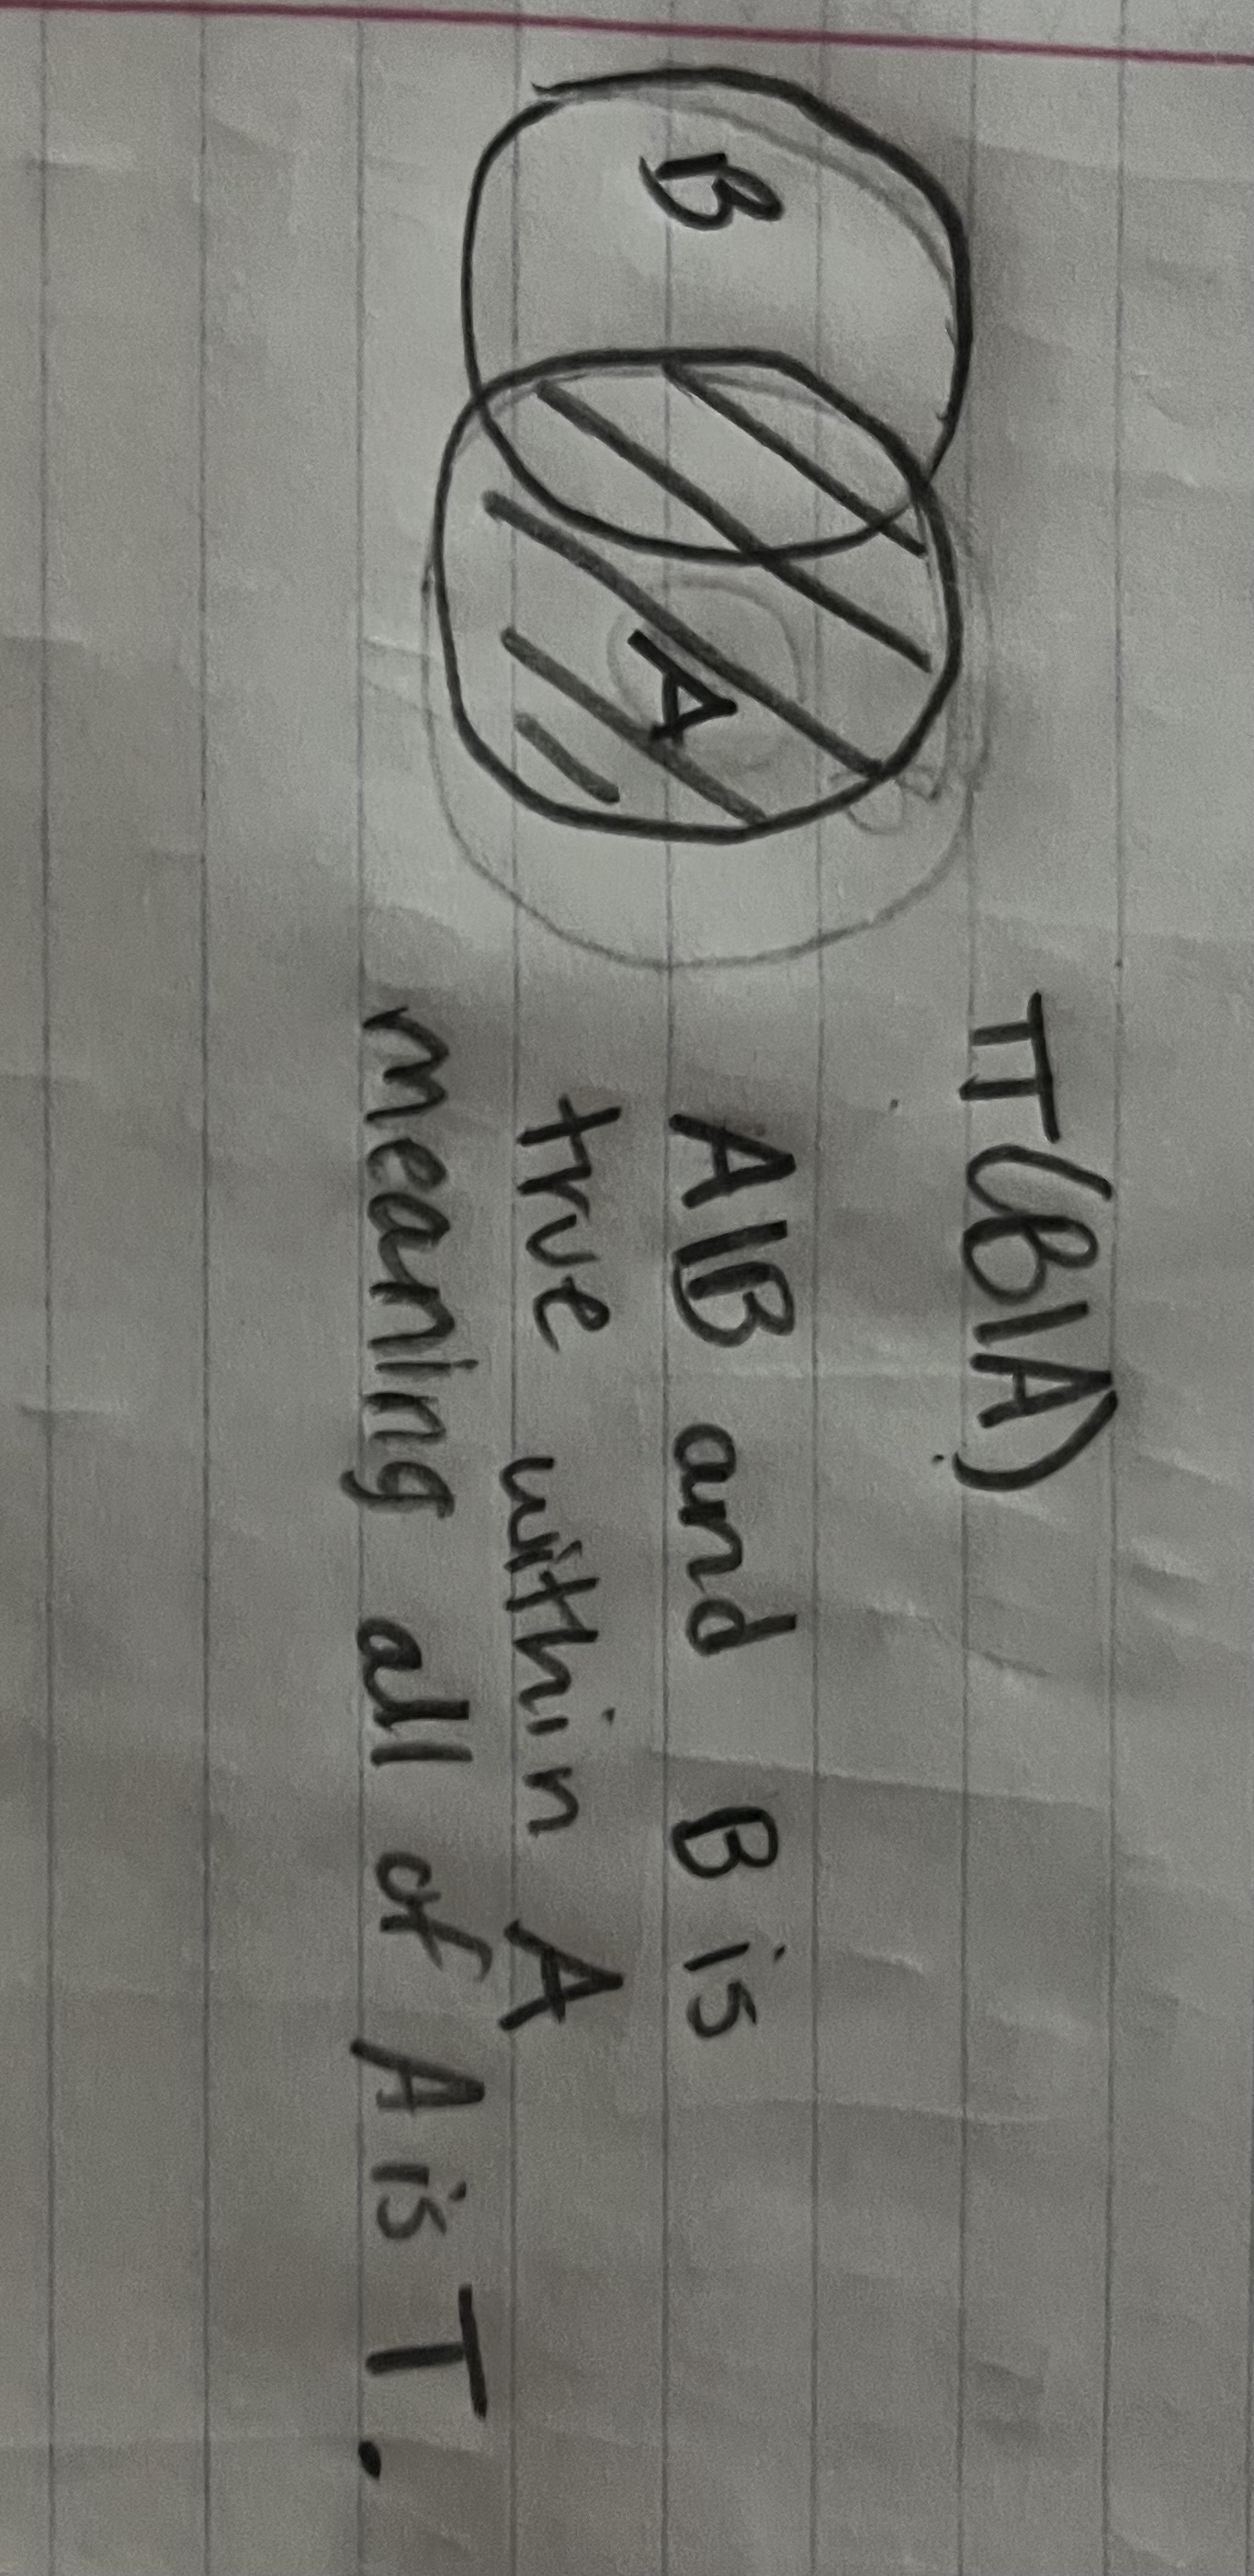 B
A
π(B|A)
A|B and B is
true within A
meaning all of A is T.